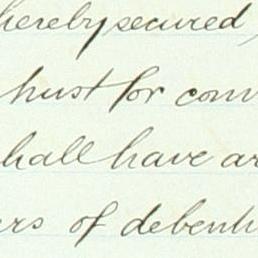 hereby secured,
trust for conv
hall have an
ers of debent